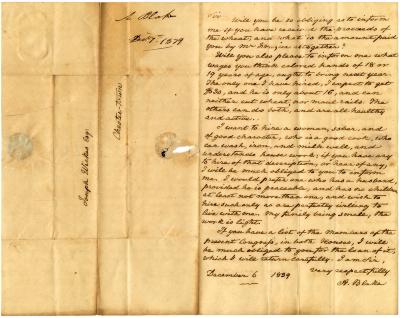 A. Blake
Dec 7th 1839
Joseph
Esq.
Sir
Will you be so obliging as to inform
me if you have received the proceeds of
the wheat, and what is the amount paid
you by Mr. altogether?
Will you also please to inform me what
wages you think colored hands of 18 or
19 years of age, ought to bring next year.
The only one I have hired, I expect to get
$30, and he is only about 16, and can
neither cut wheat, nor maul rails. The
others can do both, and are all healthy
and active.
I want to hire a woman, sober, and
of good character, who is a good cook, who
can wash, iron, and milk well, and
understands house work; if you have any
to hire of that description, or hear of any,
I will be much obliged to you to inform
me. I would prefer one who has a husband,
provided he is peaceable, and has no children
at least not more than one, and wish to
hire such only as are perfectly willing to
live with me. My family being small, the
work is light.
If you have a list of the Members of the
present Congress, in both Houses, I will
be much obliged to you for the loan of it,
which I will return carefully. I am Sir,
very respectfully
December 6 1839
A. Blake